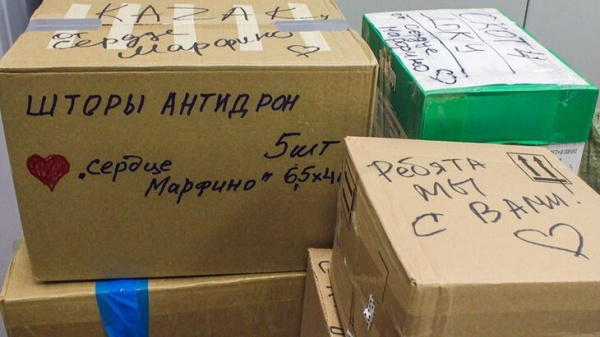 КАЗАК
от
Сердце
Марфино
ШТОРЫ АНТИДРОН
5шт
„Сердце
Марфино" 6,5х4
от Сердце
Марфино
Ребята
мы
с Вами.